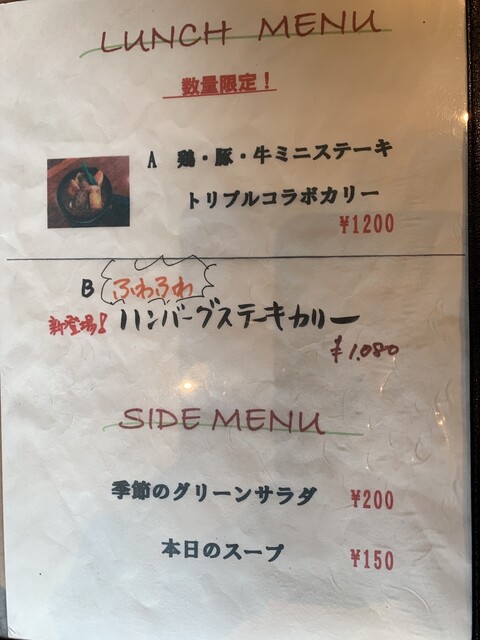 LUNCH MENU
数量限定！
A 鶏・豚・牛ミニステーキ
トリプルコラボカリー
¥1200
B ふわふわ
新登場！ ハンバーグステーキカリー
¥1,080
SIDE MENU
季節のグリーンサラダ ¥200
本日のスープ ¥150